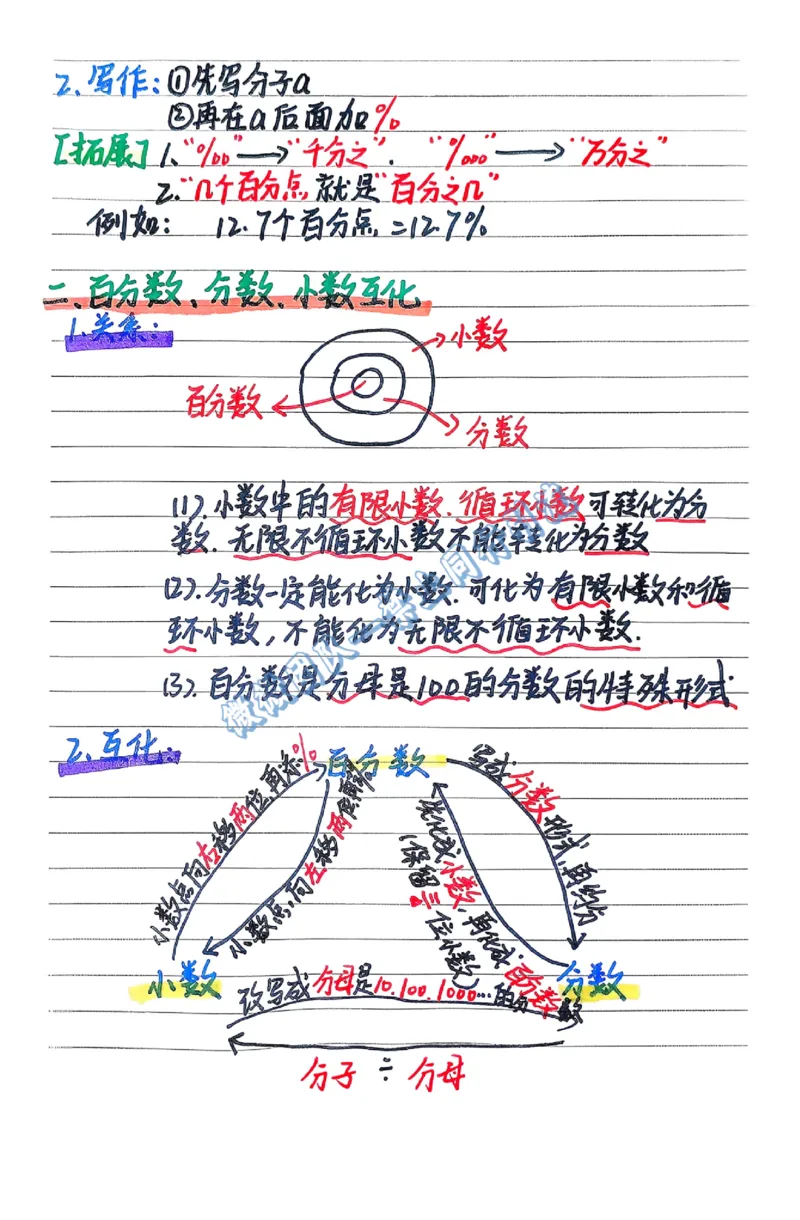 2、写作：①先写分子a
②再在a后面加%
[拓展] 1、“‰”→“千分之”、“‱”→“万分之”
2、“几个百分点”就是“百分之几”
例如： 12.7个百分点=12.7%
二、百分数、分数、小数互化
1、关系：
小数
百分数
分数
(1)、小数中的有限小数、循环小数可转化为分
数、无限不循环小数不能转化为分数
(2)、分数一定能化为小数、可化为有限小数和循
环小数，不能化为无限不循环小数.
(3)、百分数是分母是100的分数的特殊形式
2、互化：
百分数
小数点向右移两位,再添%
小数点,向左移两位
写成分数形式,再约分
先化成小数,再化成百分数
(保留三位小数)
小数
分数
改写成分母是10.100.1000…的分数
分子 ÷ 分母